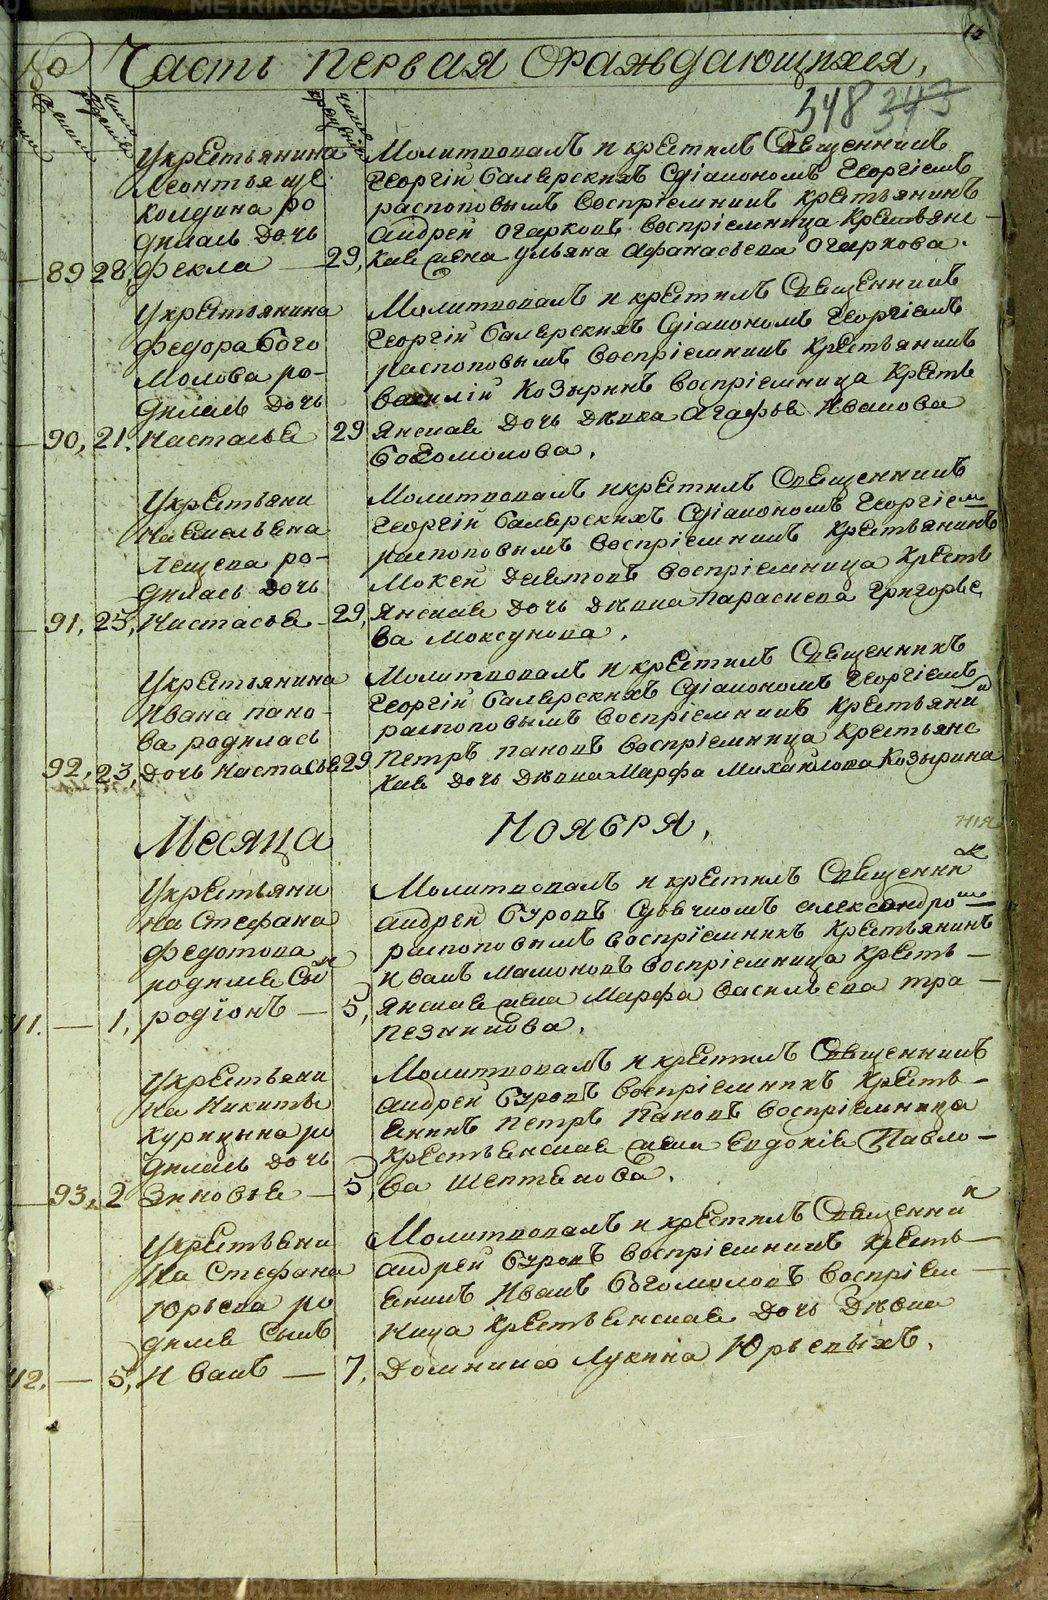 № Часть первая ораждающихся,
348 343
У крестьянина
Леонтья ще
колдина ро
дилась дочь
89 28, Фекла — 29,
Молитвовалъ и крестилъ Священникъ
Георгiй Балерскихъ Сдiакономъ Георгiемъ
распоповымъ Воспрiемникъ крестьянинъ
Андрей Огарковъ Воспрiемница крестьянс-
кая жена Ульяна Афанасьева Огаркова.
У крестьянина
Федора Бого
молова ро-
дилась дочь
90, 21. Настасья 29
Молитвовалъ и крестилъ Священникъ
Георгiй Балерскихъ Сдiакономъ Георгiемъ
распоповымъ Воспрiемникъ крестьянинъ
Василiй Козыринъ Воспрiемница кресть
янская дочь Дѣвка Агафья Иванова
Богомолова.
У крестьяни
на Емельяна
Лещева ро-
дилась дочь
91, 25, Настасья 29,
Молитвовалъ и крестилъ Священникъ
Георгiй Балерскихъ Сдiакономъ Георгiем
распоповымъ Воспрiемникъ крестьянинъ
Мокей Воспрiемница кресть
янская дочь Дѣвка Параскева Григорье
ва Моксунова.
У крестьянина
Ивана Пано-
ва родилась
92, 23, дочь Настасья 29
Молитвовалъ и крестилъ Священникъ
Георгiй Балерскихъ Сдiакономъ Георгiемъ
распоповымъ Воспрiемникъ крестьянин
Петръ Пановъ Воспрiемница крестьянс
кая дочь Дѣвка Марфа Михайлова Козырина
Месяца Ноября.
У крестьяни
на Стефана
Федотова
родился Сын
41. — 1, Родiонъ — 5,
Молитвовалъ и крестилъ Священник
Андрей Буровъ Сдьячкомъ Александром
распоповымъ Воспрiемникъ крестьянинъ
Иванъ Мамоновъ Воспрiемница кресть-
янская жена Марфа Васильева Тра-
пезникова.
У крестьяни
на Никиты
Курицына ро
дилась дочь
93, 2 Зиновья — 5,
Молитвовалъ и крестилъ Священникъ
Андрей Буровъ Воспрiемникъ кресть-
янинъ Петръ Пановъ Воспрiемница
крестьянская жена Евдокiя Павло-
ва Шептякова.
У крестьяни
на Стефана
Юрьева ро
дился Сынъ
42. — 5, Иванъ — 7,
Молитвовалъ и крестилъ Священник
Андрей Буровъ Воспрiемникъ кресть-
янинъ Иванъ Богомоловъ Воспрiем-
ница крестьянская дочь Дѣвка
Домника Лукина Юрьевыхъ.